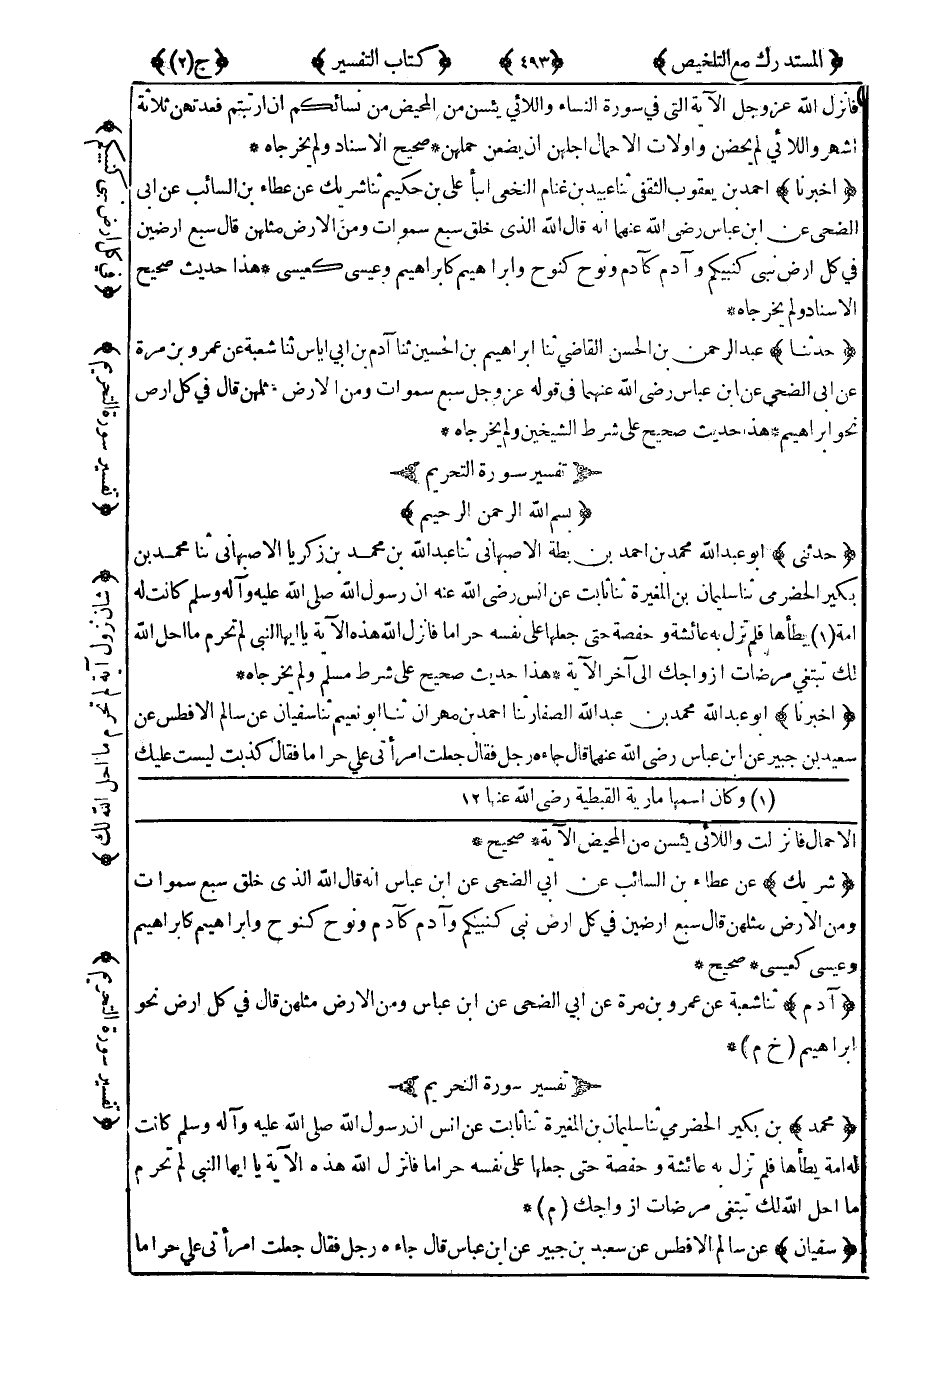 ﴿ المستدرك مع التلخيص ﴾ ﴿ ٤٩٣ ﴾ ﴿ كتاب التفسير ﴾ ﴿ ج (٢) ﴾
فانزل الله عز وجل الآية التى في سورة النساء واللائي يئسن من المحيض من نسائكم ان ارتبتم فعدتهن ثلاثة
اشهر واللائي لم يحضن واولات الاحمال اجلهن ان يضعن حملهن * صحيح الاسناد ولم يخرجاه *
﴿ اخبرنا ﴾ احمد بن يعقوب الثقفي ثنا عبيد بن غنام النخعى انبأ على بن حكيم ثنا شريك عن عطاء بن السائب عن ابى
الضحى عن ابن عباس رضى الله عنهما انه قال الله الذى خلق سبع سموات ومن الارض مثلهن قال سبع ارضين
في كل ارض نبى كنبيكم و آدم كآدم ونوح كنوح وابراهيم كابراهيم وعيسى كعيسى * هذا حديث صحيح
الاسناد ولم يخرجاه *
﴿ حدثنا ﴾ عبدالرحمن بن الحسن القاضي ثنا ابراهيم بن الحسين ثنا آدم بن ابي اياس ثنا شعبة عن عمرو بن مرة
عن ابى الضحى عن ابن عباس رضى الله عنهما فى قوله عز وجل سبع سموات ومن الارض مثلهن قال في كل ارض
نحو ابراهيم * هذا حديث صحيح على شرط الشيخين ولم يخرجاه *
تفسير سورة التحريم
﴿ بسم الله الرحمن الرحيم ﴾
﴿ حدثنى ﴾ ابو عبدالله محمد بن احمد بن بطة الاصبهانى ثنا عبدالله بن محمد بن زكريا الاصبهانى ثنا محمد بن
بكير الحضرمى ثنا سليمان بن المغيرة ثنا ثابت عن انس رضى الله عنه ان رسول الله صلى الله عليه وآله وسلم كانت له
امة (١) يطأها فلم تزل به عائشة و حفصة حتى جعلها على نفسه حراما فانزل الله هذه الآية يا ايها النبى لم تحرم ما احل الله
لك تبتغي مرضات ازواجك الى آخر الآية * هذا حديث صحيح على شرط مسلم ولم يخرجاه *
﴿ اخبرنا ﴾ ابو عبدالله محمد بن عبدالله الصفار ثنا احمد بن مهران ثنا ابو نعيم ثنا سفيان عن سالم الافطس عن
سعيد بن جبير عن ابن عباس رضى الله عنهما قال جاءه رجل فقال جعلت امرأتى علي حراما فقال كذبت ليست عليك
(١) وكان اسمها مارية القبطية رضى الله عنها ١٢
الاحمال فانزلت واللائي يئسن من المحيض الآية * صحيح *
﴿ شريك ﴾ عن عطاء بن السائب عن ابي الضحى عن ابن عباس انه قال الله الذى خلق سبع سموات
ومن الارض مثلهن قال سبع ارضين في كل ارض نبى كنبيكم وآدم كآدم ونوح كنوح وابراهيم كابراهيم
وعيسى كعيسى * صحيح *
﴿ آدم ﴾ ثنا شعبة عن عمرو بن مرة عن ابي الضحى عن ابن عباس ومن الارض مثلهن قال في كل ارض نحو
ابراهيم (خ م) *
تفسير سورة التحريم
﴿ محمد ﴾ بن بكير الحضرمي ثنا سليمان بن المغيرة ثنا ثابت عن انس ان رسول الله صلى الله عليه وآله وسلم كانت
له امة يطأها فلم تزل به عائشة و حفصة حتى جعلها على نفسه حراما فانزل الله هذه الآية يا ايها النبي لم تحرم
ما احل الله لك تبتغى مرضات ازواجك (م) *
﴿ سفيان ﴾ عن سالم الافطس عن سعيد بن جبير عن ابن عباس قال جاءه رجل فقال جعلت امرأتى علي حراما
﴿ في كل ارض نبي كنبيكم ﴾
﴿ تفسير سورة التحريم ﴾
﴿ شان نزول آية لم تحرم ما احل الله لك ﴾
﴿ تفسير سورة التحريم ﴾